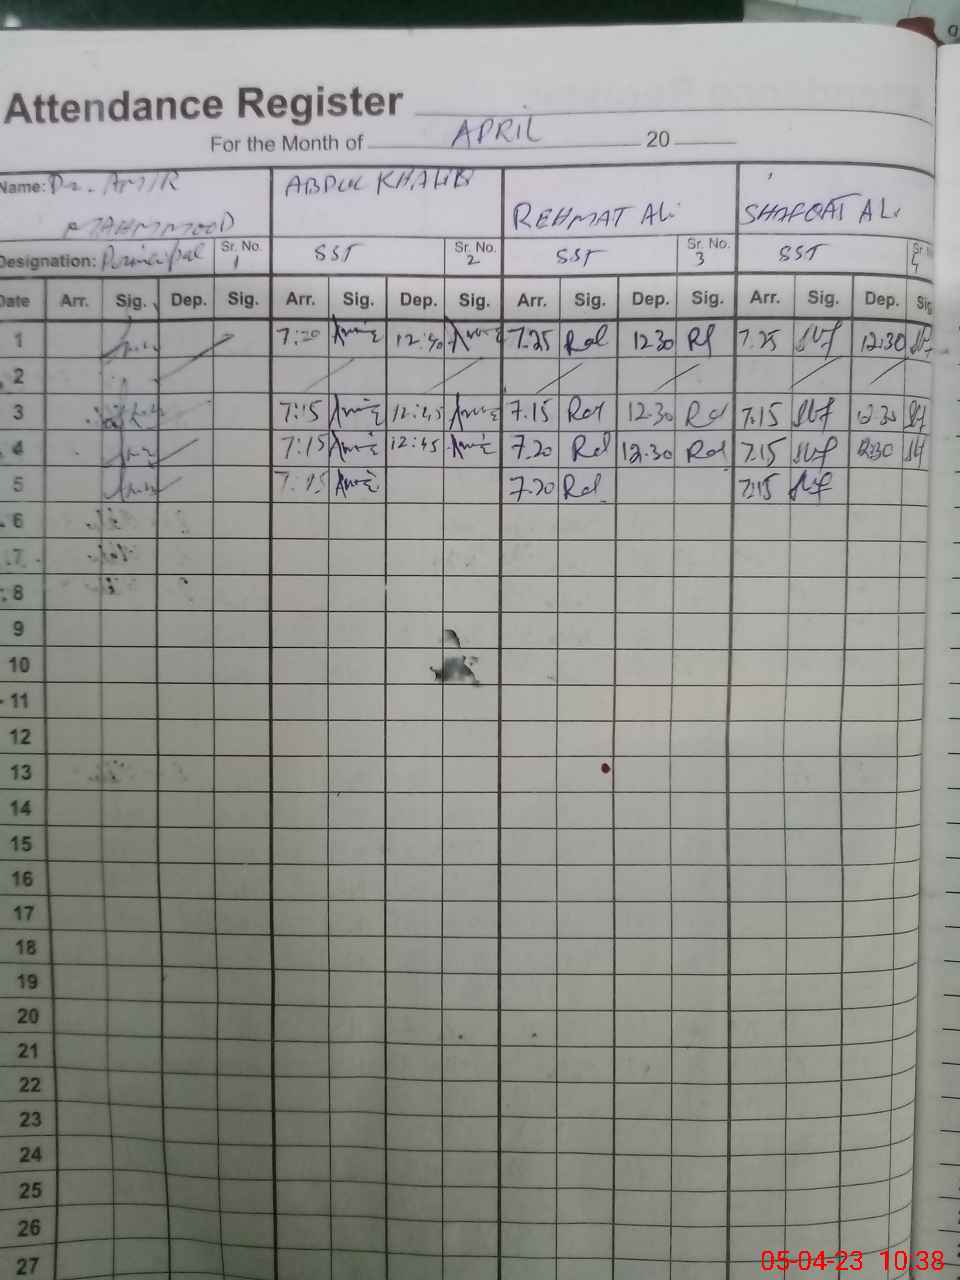 Attendance Register
For the Month of APRIL 20
Name: Dr. AMIR MAHMMOOD ABDUL KHALIQ REHMAT ALi SHAFQAT ALi
Designation: Principal Sr. No. 1 SST Sr. No. 2 SST Sr. No. 3 SST Sr. No. 4
Date Arr. Sig. Dep. Sig. Arr. Sig. Dep. Sig. Arr. Sig. Dep. Sig. Arr. Sig. Dep. Sig
1 7:20 12:40 7.25 Ral 1230 7.25 12:30
2
3 7:15 12:45 7.15 Ral 12.30 Ral 7.15 12.30
4 7:15 12:45 7.20 Ral 12.30 Ral 7.15 12:30
5 7.20 Ral 7:15
6
7
8
9
10
11
12
13
14
15
16
17
18
19
20
21
22
23
24
25
26
27
05-04-23 10:38